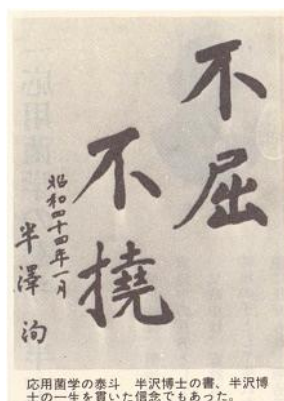 不屈
不撓
昭和四十四年一月
半澤洵
応用菌学の泰斗 半沢博士の書、半沢博
士の一生を貫いた信念でもあった。